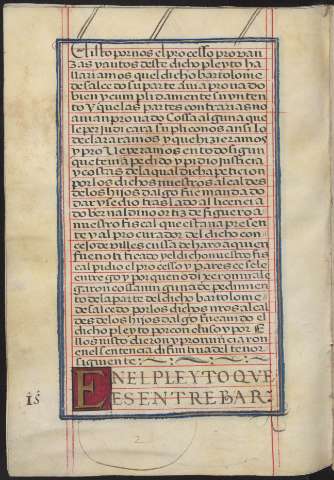 Visto por nos el processo y prouan
zas y autos deste dicho pleyto ha
llariamos quel dicho bartolome
de salcedo su parte auia prouado
bien y cumplidamente su yntento
to y que las partes contrarias no
auian prouado Cossa alguna que
le perjudicara suplico nos ansi lo
declararamos y que hizieramos
y proueyeramos en todo sigun
que tenia pedido y pidio justicia
y costas de la qual dicha peticion
por los dichos nuestros alcaldes
de los hijos dalgo fue mandado
dar y se dio traslado al licenciado
do bernaldino ortiz de figueroa
nuestro fiscal que estaua presen
te y al procurador del dicho con
cejo de villescussa de haro a quien
fue notificado y el dicho nuestro fis
cal pidio el processo y paresce se le
entrego y porque no dixeron ni ale
garon cossa ninguna de pedimiento
de la parte del dicho bartolome
de salcedo por los dichos nros alcal
des de los hijos dalgo fue auido el
dicho pleyto por concluso y por E
llos uisto dieron y pronunciaron
en el sentencia difinitiua del tenor
siguiente:
EN EL PLEYTO QVE
ES ENTRE BAR